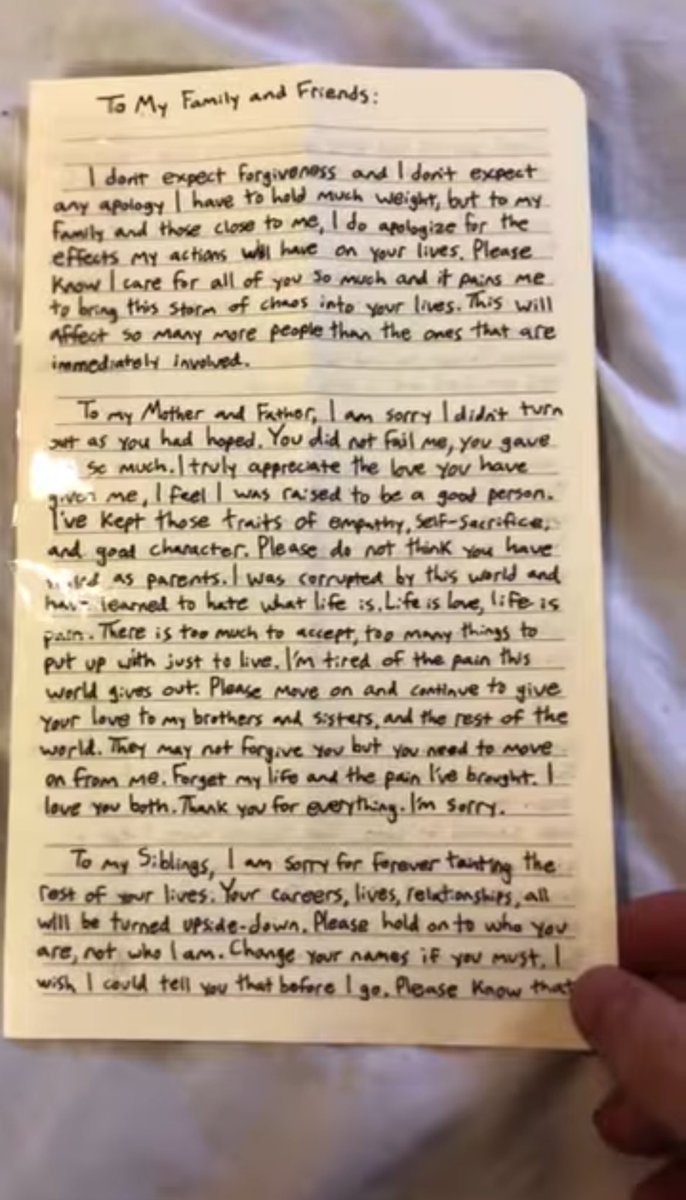 To My Family and Friends:
I don't expect forgiveness and I don't expect
any apology I have to hold much weight, but to my
family and those close to me, I do apologize for the
effects my actions will have on your lives. Please
know I care for all of you so much and it pains me
to bring this storm of chaos into your lives. This will
affect so many more people than the ones that are
immediately involved.
To my Mother and Father, I am sorry I didn't turn
out as you had hoped. You did not fail me, you gave
so much. I truly appreciate the love you have
given me, I feel I was raised to be a good person.
I've kept those traits of empathy, self-sacrifice,
and good character. Please do not think you have
as parents. I was corrupted by this world and
have learned to hate what life is. Life is love, life is
pain. There is too much to accept, too many things to
put up with just to live. I'm tired of the pain this
world gives out. Please move on and continue to give
your love to my brothers and sisters, and the rest of the
world. They may not forgive you but you need to move
on from me. Forget my life and the pain I've brought. I
love you both. Thank you for everything. I'm sorry.
To my Siblings, I am sorry for forever tanting the
rest of your lives. Your careers, lives, relationships, all
will be turned upside-down. Please hold on to who you
are, not who I am. Change your names if you must, I
wish I could tell you that before I go. Please know that